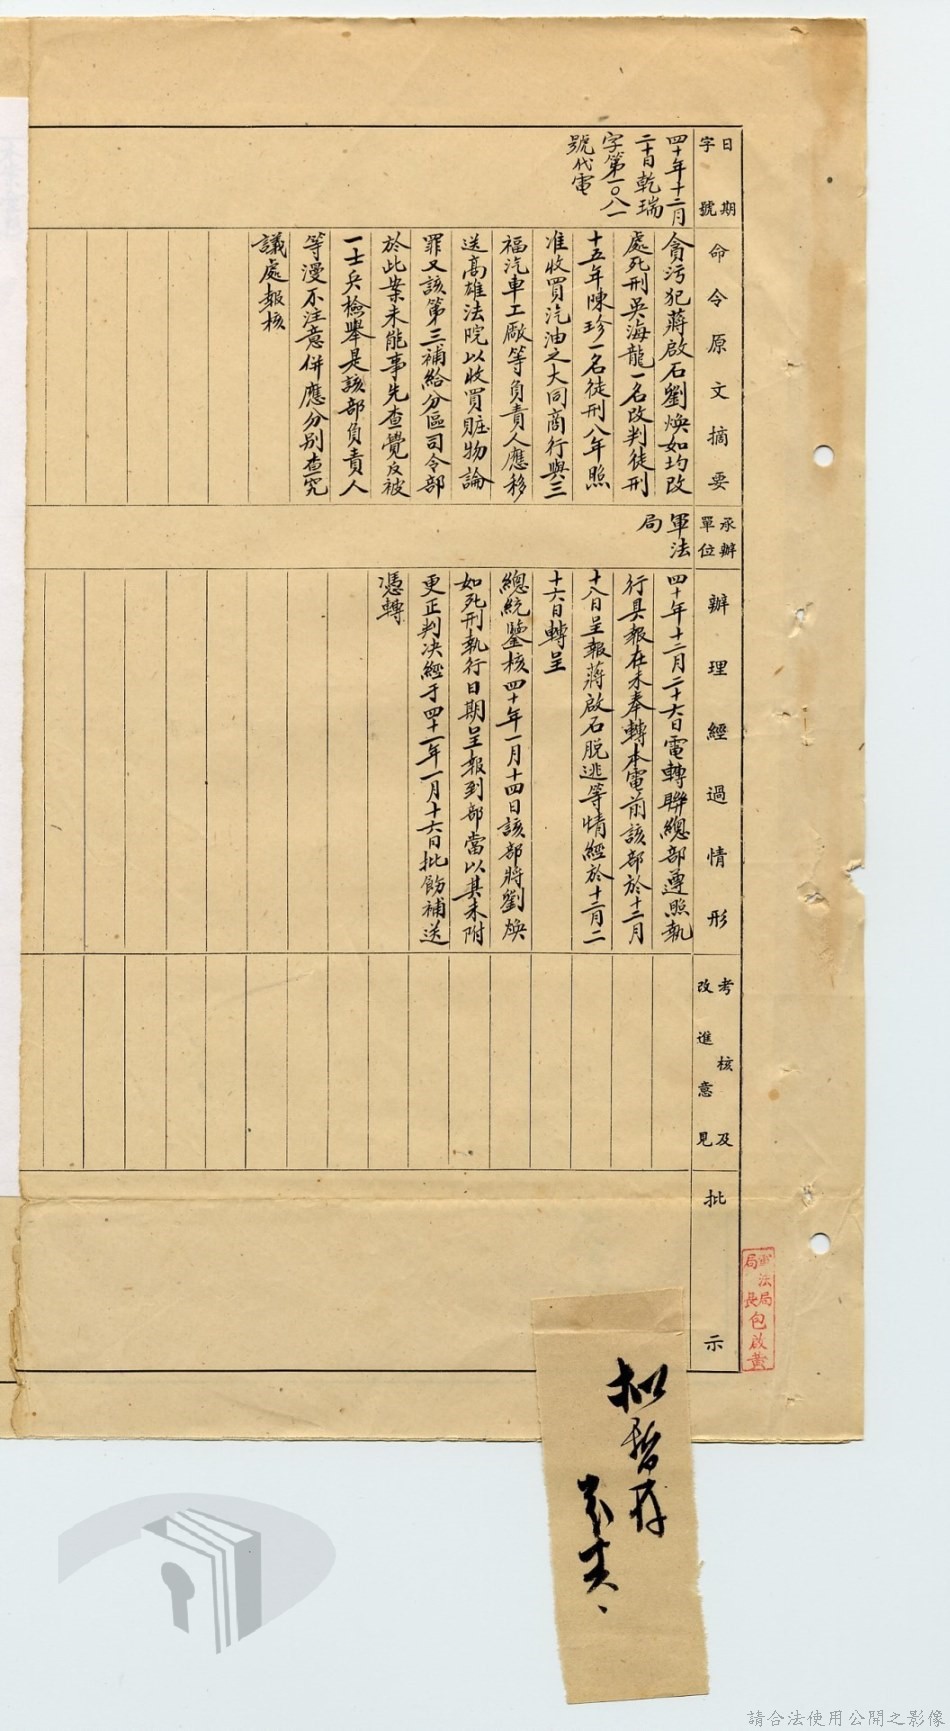 日期
字號
四十年十二月
二十日乾瑞
字第一〇八一
號代電
命令原文摘要
貪污犯蔣啟石劉煥如均改
處死刑吳海龍一名改判徒刑
十五年陳珍一名徒刑八年照
准收買汽油之大同商行與三
福汽車工廠等負責人應移
送高雄法院以收買贓物論
罪又該第三補給分區司令部
於此案未能事先查覺反被
一士兵檢舉是該部負責人
等漫不注意併應分別查究
議處報核
承辦
單位
軍法
局
辦理經過情形
四十年十二月二十六日電轉聯總部遵照執
行具報在未奉轉本電前該部於十二月
十八日呈報蔣啟石脫逃等情經於十二月二
十六日轉呈
總統鑒核四十年一月十四日該部將劉煥
如死刑執行日期呈報到部當以其未附
更正判决經于四十一年一月十六日批飭補送
憑轉
考核及
改進意見
批示
軍法局
局長包啟黃
擬暫存
請合法使用公開之影像